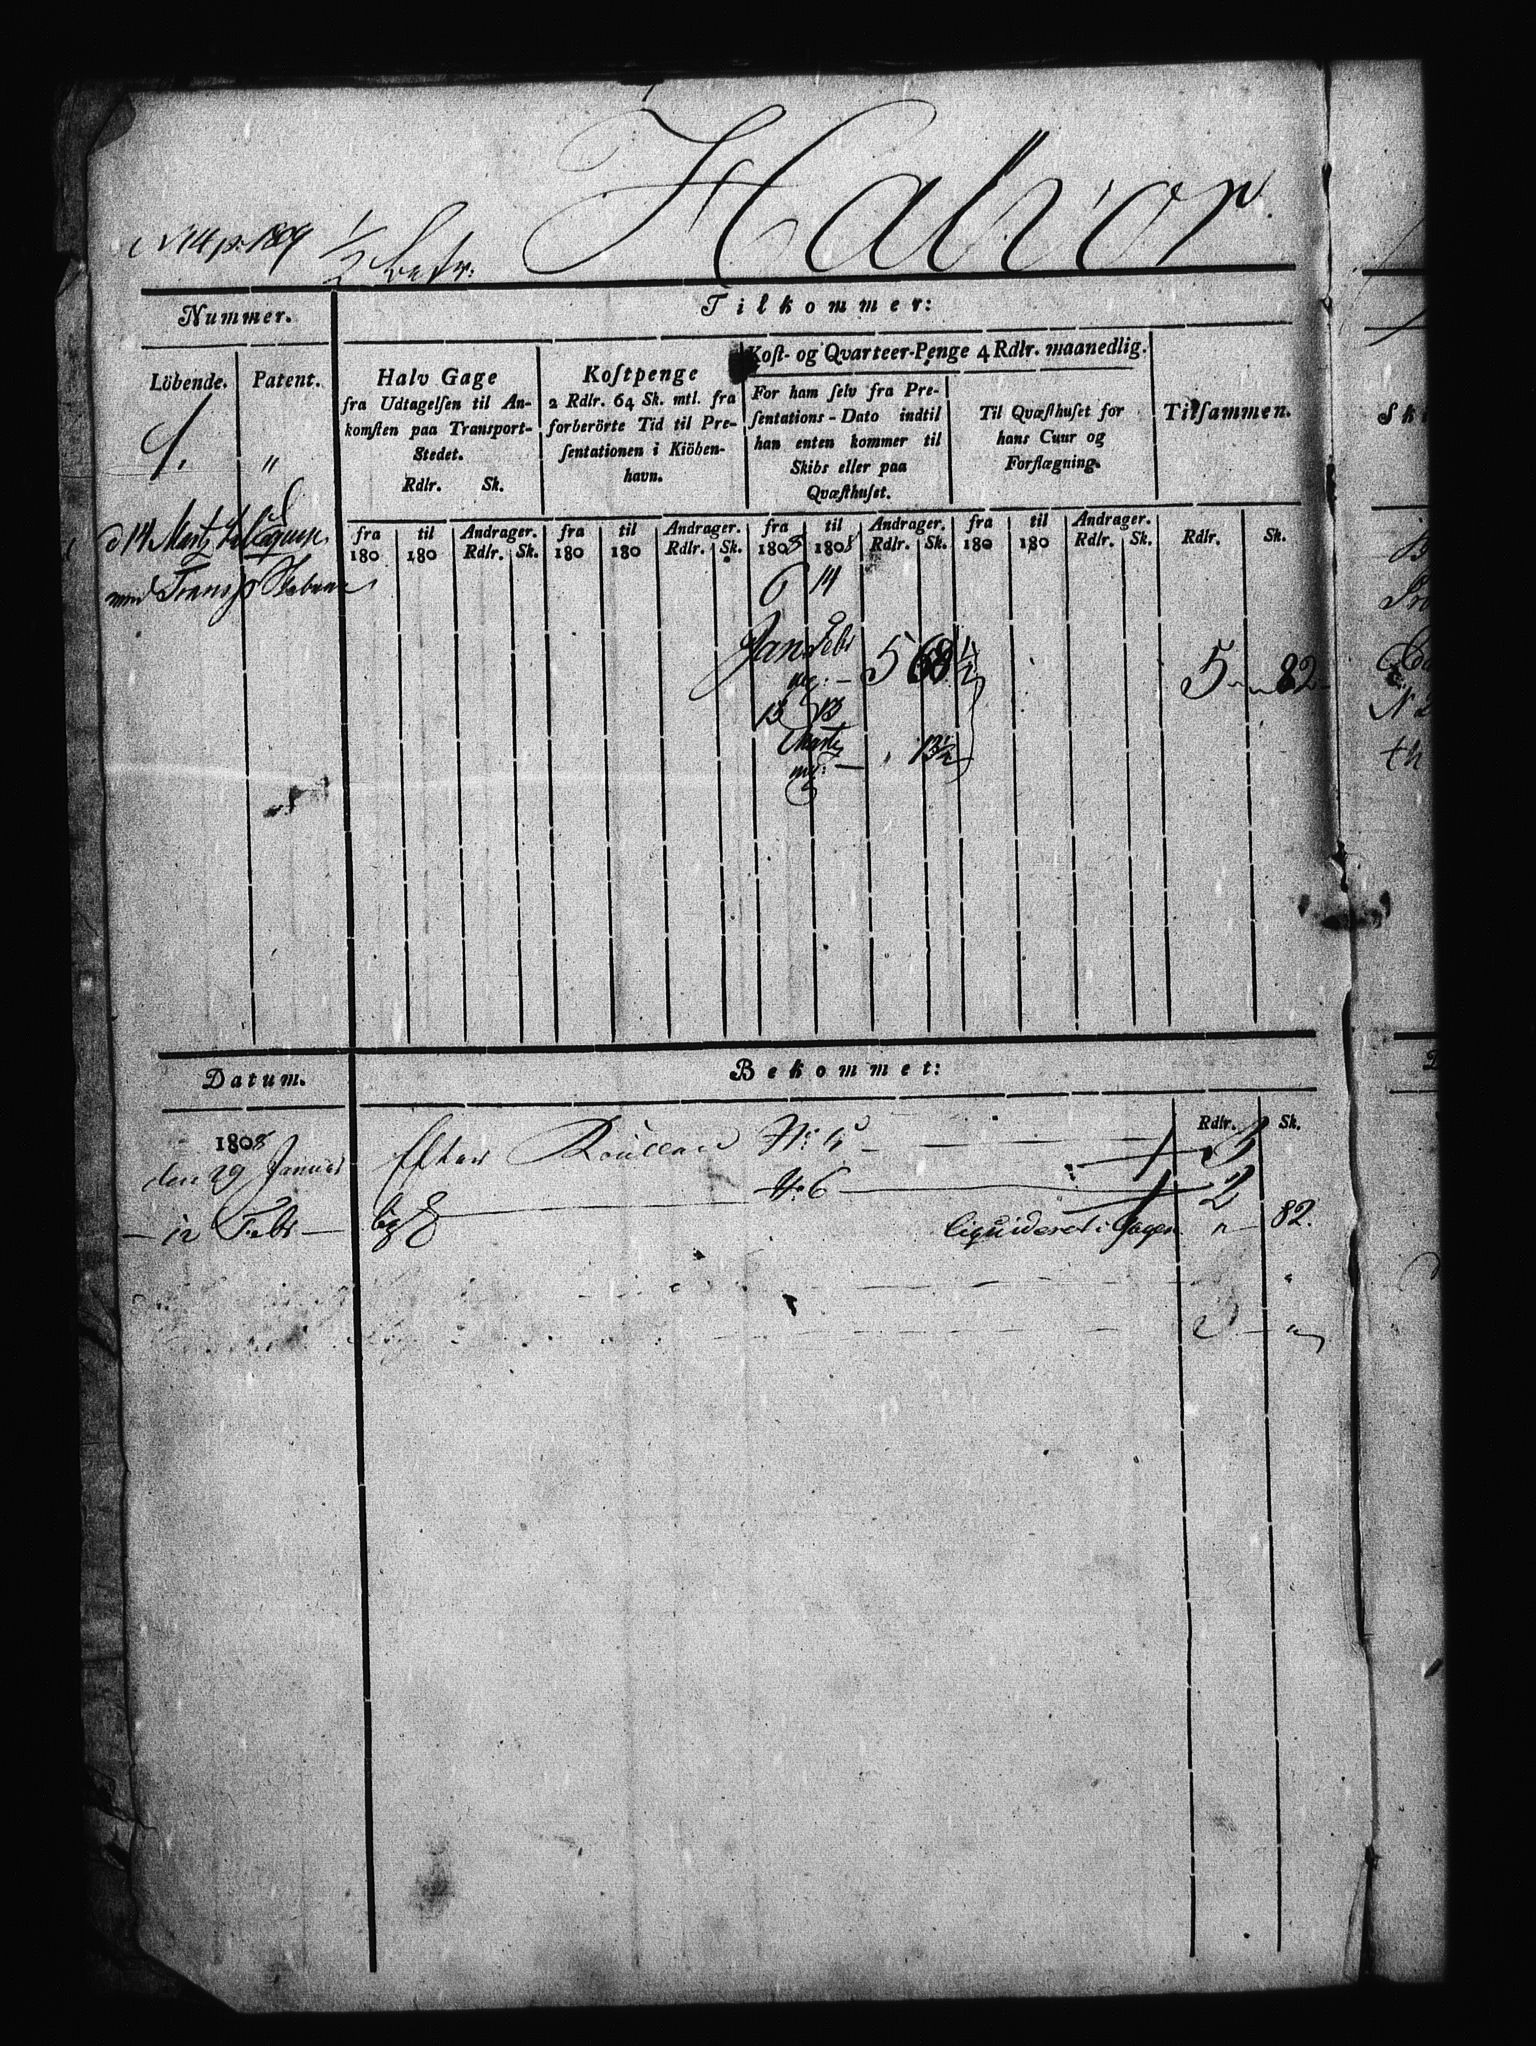 Halvor
Nummer.
Tilkommer:
Löbende.
Patent.
Halv Gage
fra Udtagelsen til An-
komsten paa Transport-
Stedet.
Rdlr. Sk.
Kostpenge
2 Rdlr. 64 Sk. mtl. fra
forberörte Tid til Pre-
sentationen i Kiöben-
havn.
Kost- og Qvarteer-Penge 4 Rdlr. maanedlig.
For ham selv fra Pre-
sentations-Dato indtil
han enten kommer til
Skibs eller paa
Qvæsthuset.
Til Qvæsthuset for
hans Cuur og
Forflægning.
Tilsammen.
1.
"
fra til Andrager. fra til Andrager. fra til Andrager. fra til Andrager. Rdlr. Sk.
180 180 Rdlr. Sk. 180 180 Rdlr. Sk. 1808 1808 Rdlr. Sk. 180 180 Rdlr. Sk.
d 14 Marty
med Transp
6 14
Jan Febr 5 68 1/2
5 82
13 13
Marty
13 1/2
Datum.
Bekommet:
Rdlr. Sk.
1808
den 29 Januar Efter Roullance No 5 3
- 12 Febr - No 6 2
liqvideret i Gagen " 82.